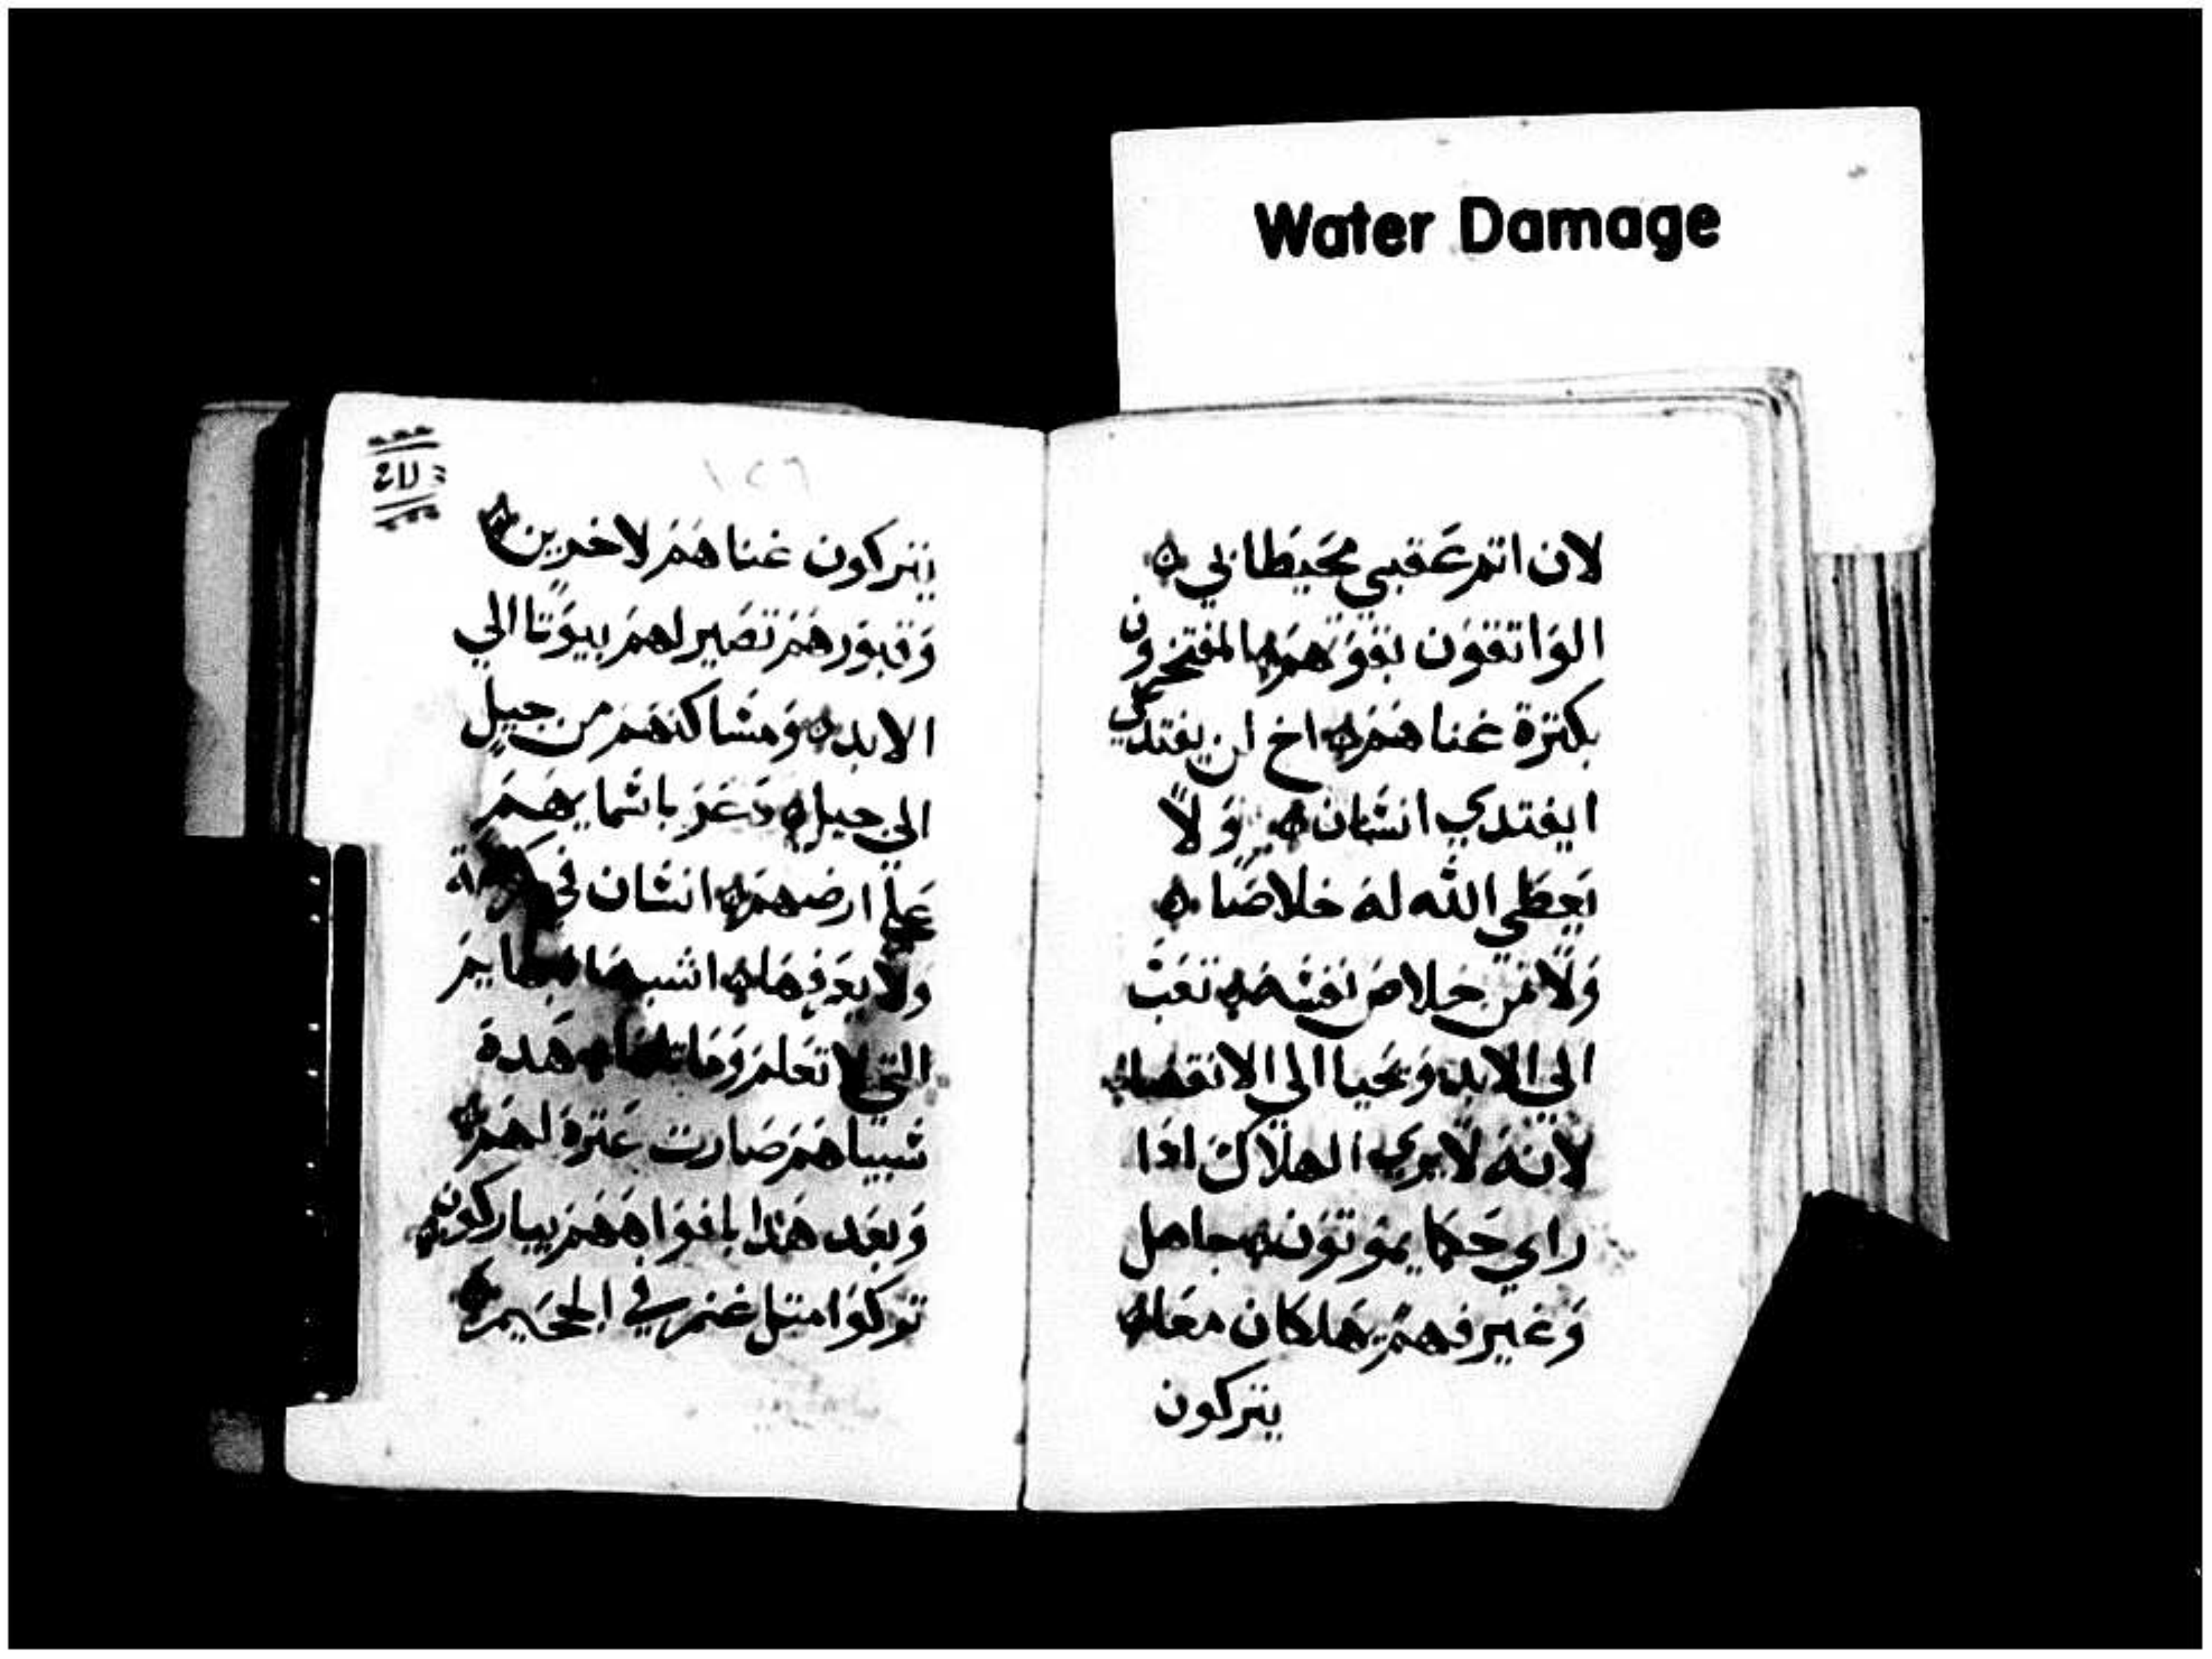 Water Damage
لان اتم عقبي محيطا بي
الواتقون بقوتهم المفتخرون
بكترة غناهم اخ لن يفتدي
ايفتدي انسان ولا
يعطي الله له خلاصا
ولا من خلاص نفسه تعب
الي الابد ويحيا الي الانقضا
لانه لا يري الهلاك ادا
راي حكما يموتون جاهل
وغير فهم يهلكان معا
يتركون
١٢٦
يتركون غناهم لاخرين
وقبورهم تصير لهم بيوتا الي
الابد ومساكنهم من جيل
الي جيل دعو باسمايهم
علي ارضهم انسان في
ولا يعرفها اشبه بهايم
التي لا تعلم وماتلها هده
سبيلهم صارت عترة لهم
وبعد هدا بافواههم يباركون
تركوا متل غنم في الجحيم